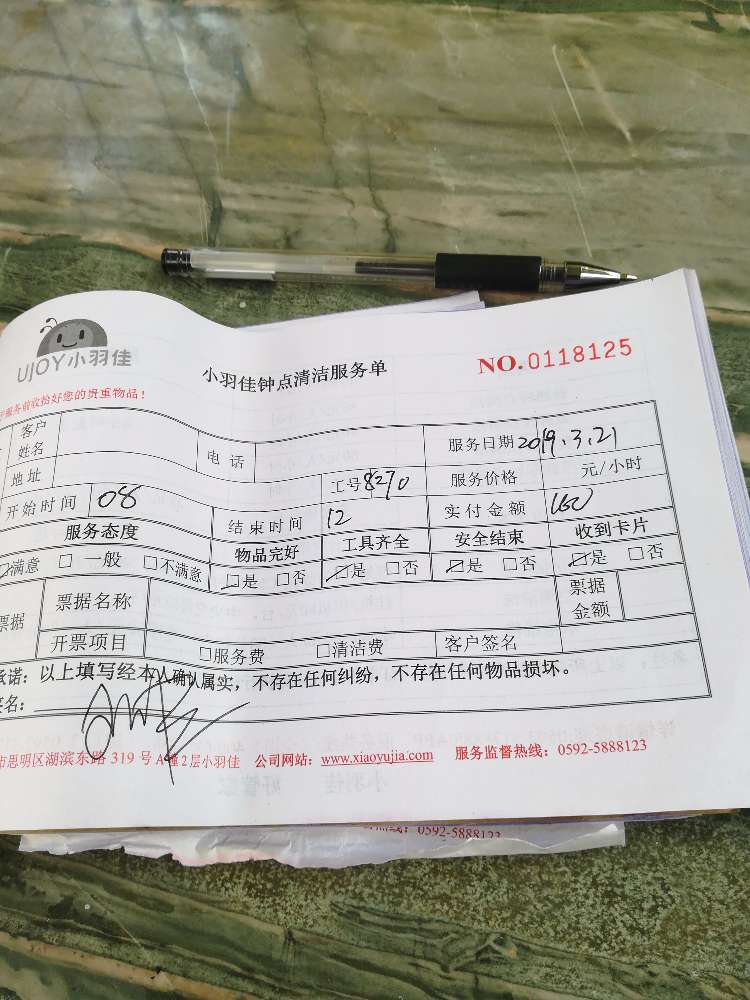 UJOY小羽佳
小羽佳钟点清洁服务单
NO.0118125
服务前收拾好您的贵重物品!
客户姓名 电话 服务日期 2019.3.21
地址 工号 8270 服务价格 元/小时
开始时间 08 结束时间 12 实付金额 160
服务态度 物品完好 工具齐全 安全结束 收到卡片
☑满意 □一般 □不满意 □是 □否 ☑是 □否 ☑是 □否 ☑是 □否
票据 票据名称 票据金额
开票项目 □服务费 □清洁费 客户签名
承诺:以上填写经本人确认属实,不存在任何纠纷,不存在任何物品损坏。
签名:
市思明区湖滨东路 319 号 A 幢 2 层小羽佳 公司网站:www.xiaoyujia.com 服务监督热线:0592-5888123
热线:0592-5888123